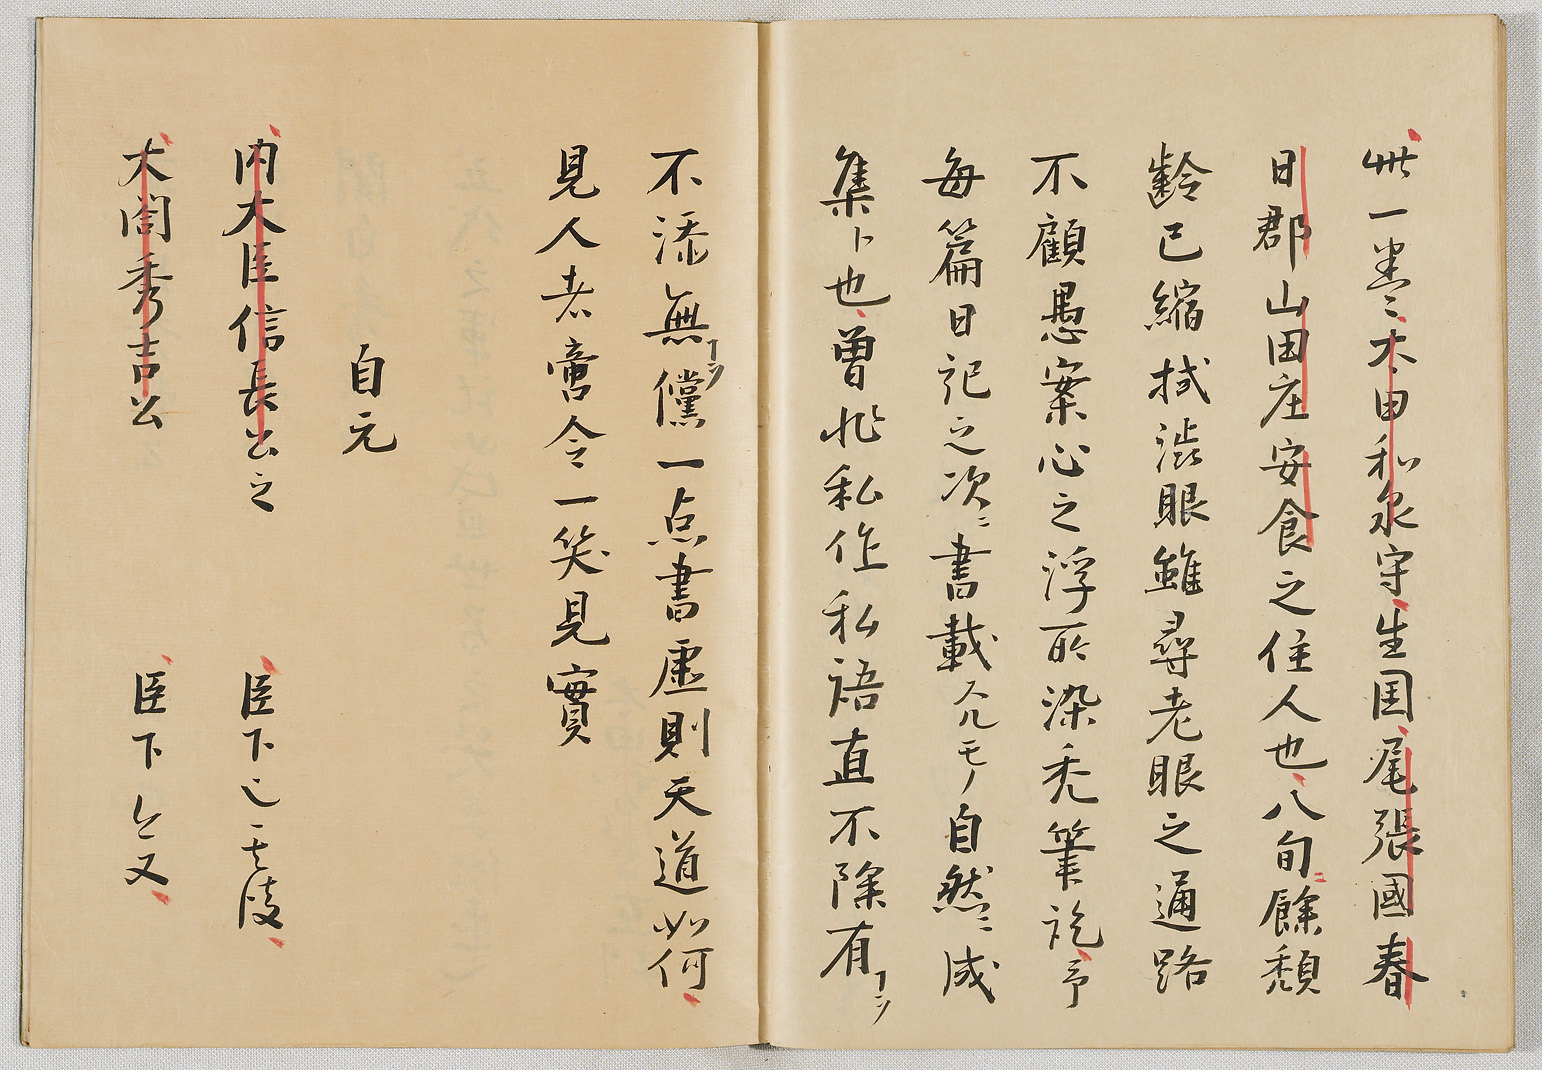 此一巻ミ太田和泉守生国尾張國春
日郡山田庄安食之住人也八旬ニ餘頽
齢已縮拭渋眼雖尋老眼之通路
不顧愚案心之浮所染禿筆訖予
毎篇日記之次ニ書載スルモノ自然ニ成
集ト也曽非私作私語直不除有ヿヲ
不添無ヿヲ儻一点書虚則天道如何
見人者啻令一笑見實
自元
内大臣信長公之　臣下也其後
大閤秀吉公　臣下今又